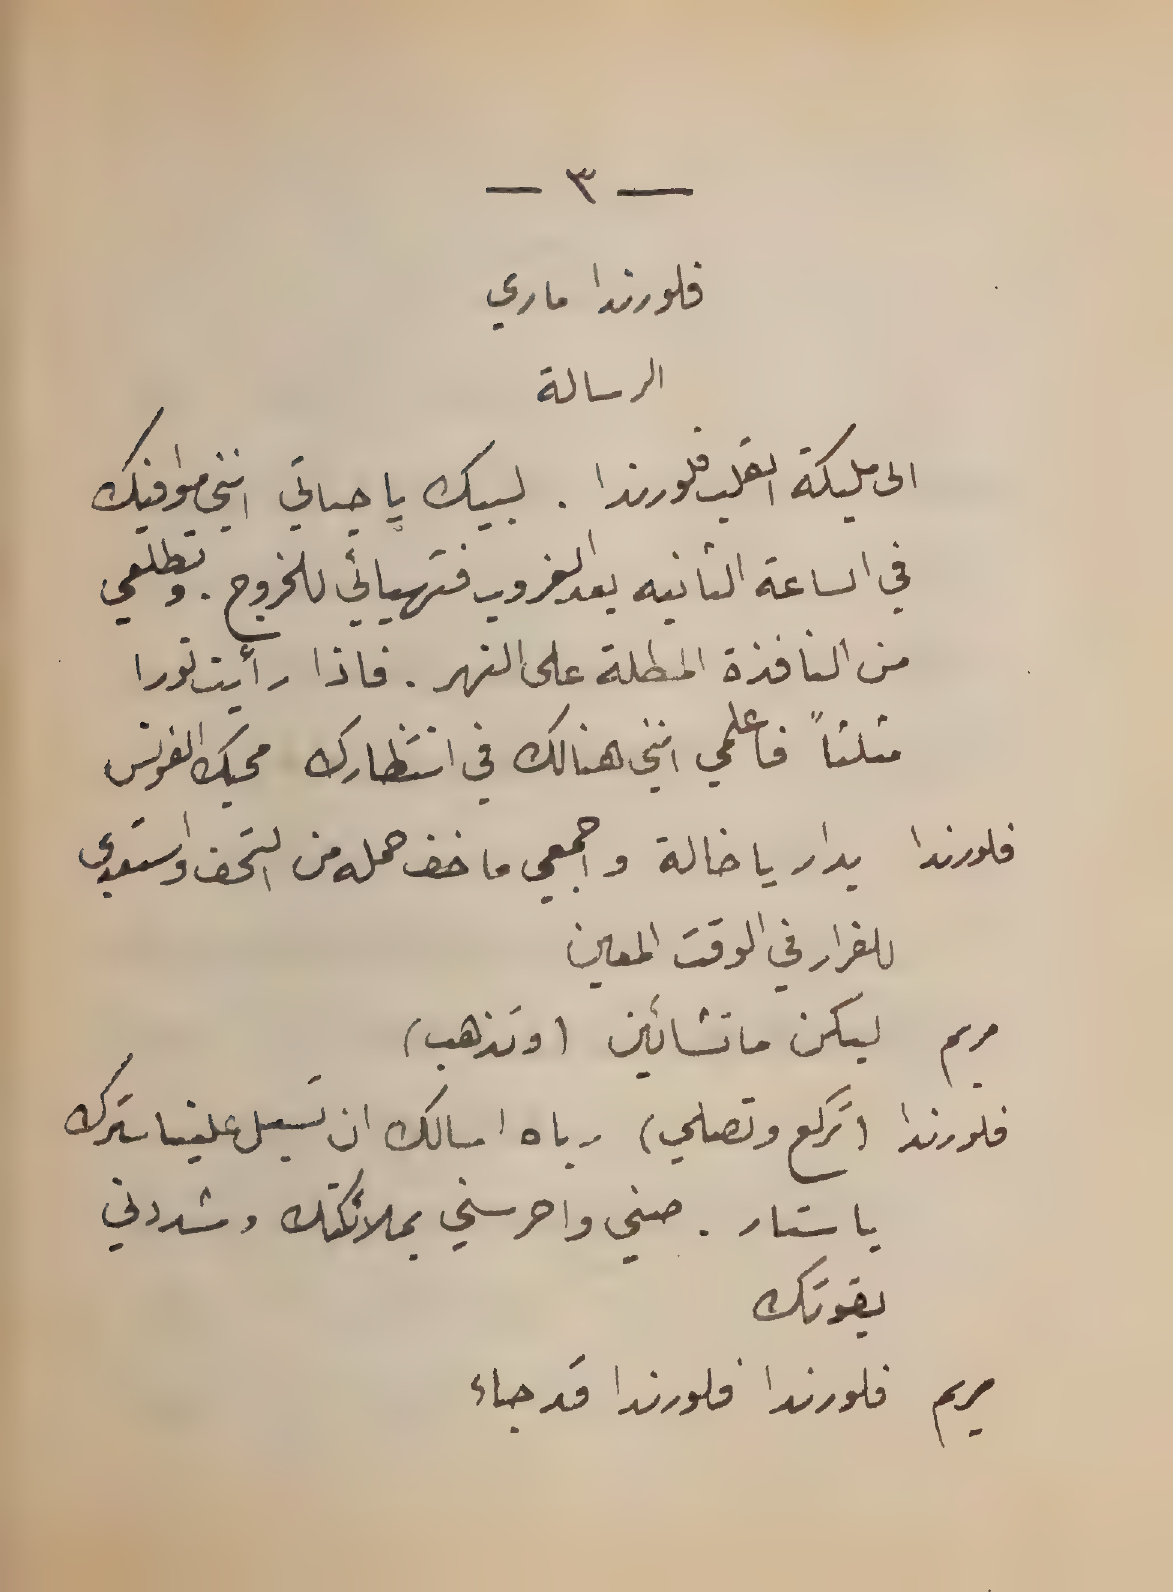 — ٣ —
فلورندا ماري
الرسالة
الى مليكة القلب فلورندا . لبيك يا حياتي انني موافيك
في الساعة الثانيه بعد الغروب فتهيائي للخروج . وتطلعي
من النافذة المطلة على النهر . فاذا رأيت نورا
مثلثاً فاعلمي انني هنالك في انتظارك محبك الفونس
فلورندا بدار يا خالة واجمعي ما خف حمله من التحف واستعدي
للفرار في الوقت المعين
مريم ليكن ما تشائين (وتذهب)
فلورندا (تركع وتصلي) رباه اسالك ان تسبل علينا سترك
يا ستار . صني واحرسني بملائكتك وشددني
بقوتك
مريم فلورندا فلورندا قد جاء